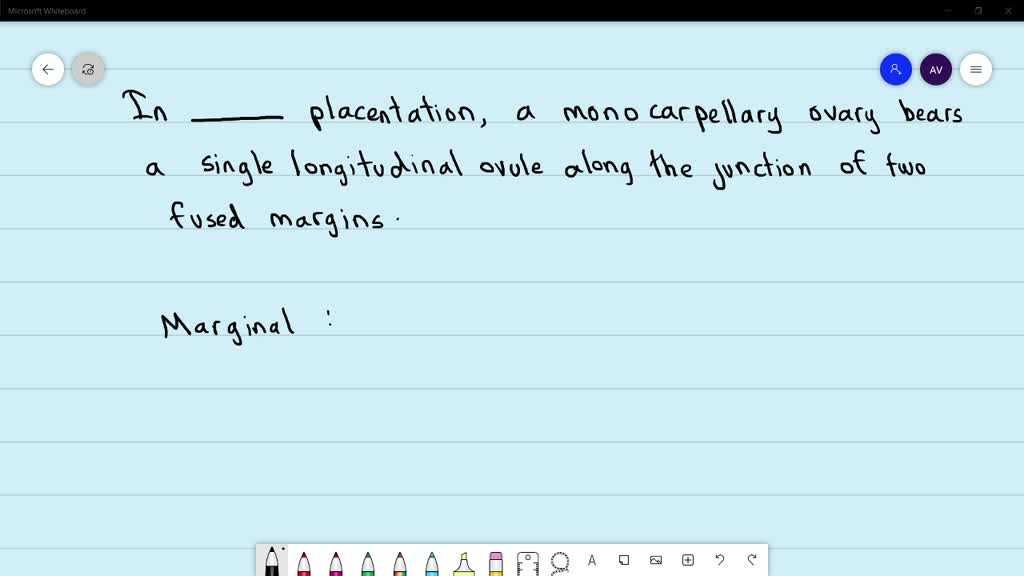 Microsoft Whiteboard
AV
In ______ placentation, a monocarpellary ovary bears
a single longitudinal ovule along the junction of two
fused margins.
Marginal :
A